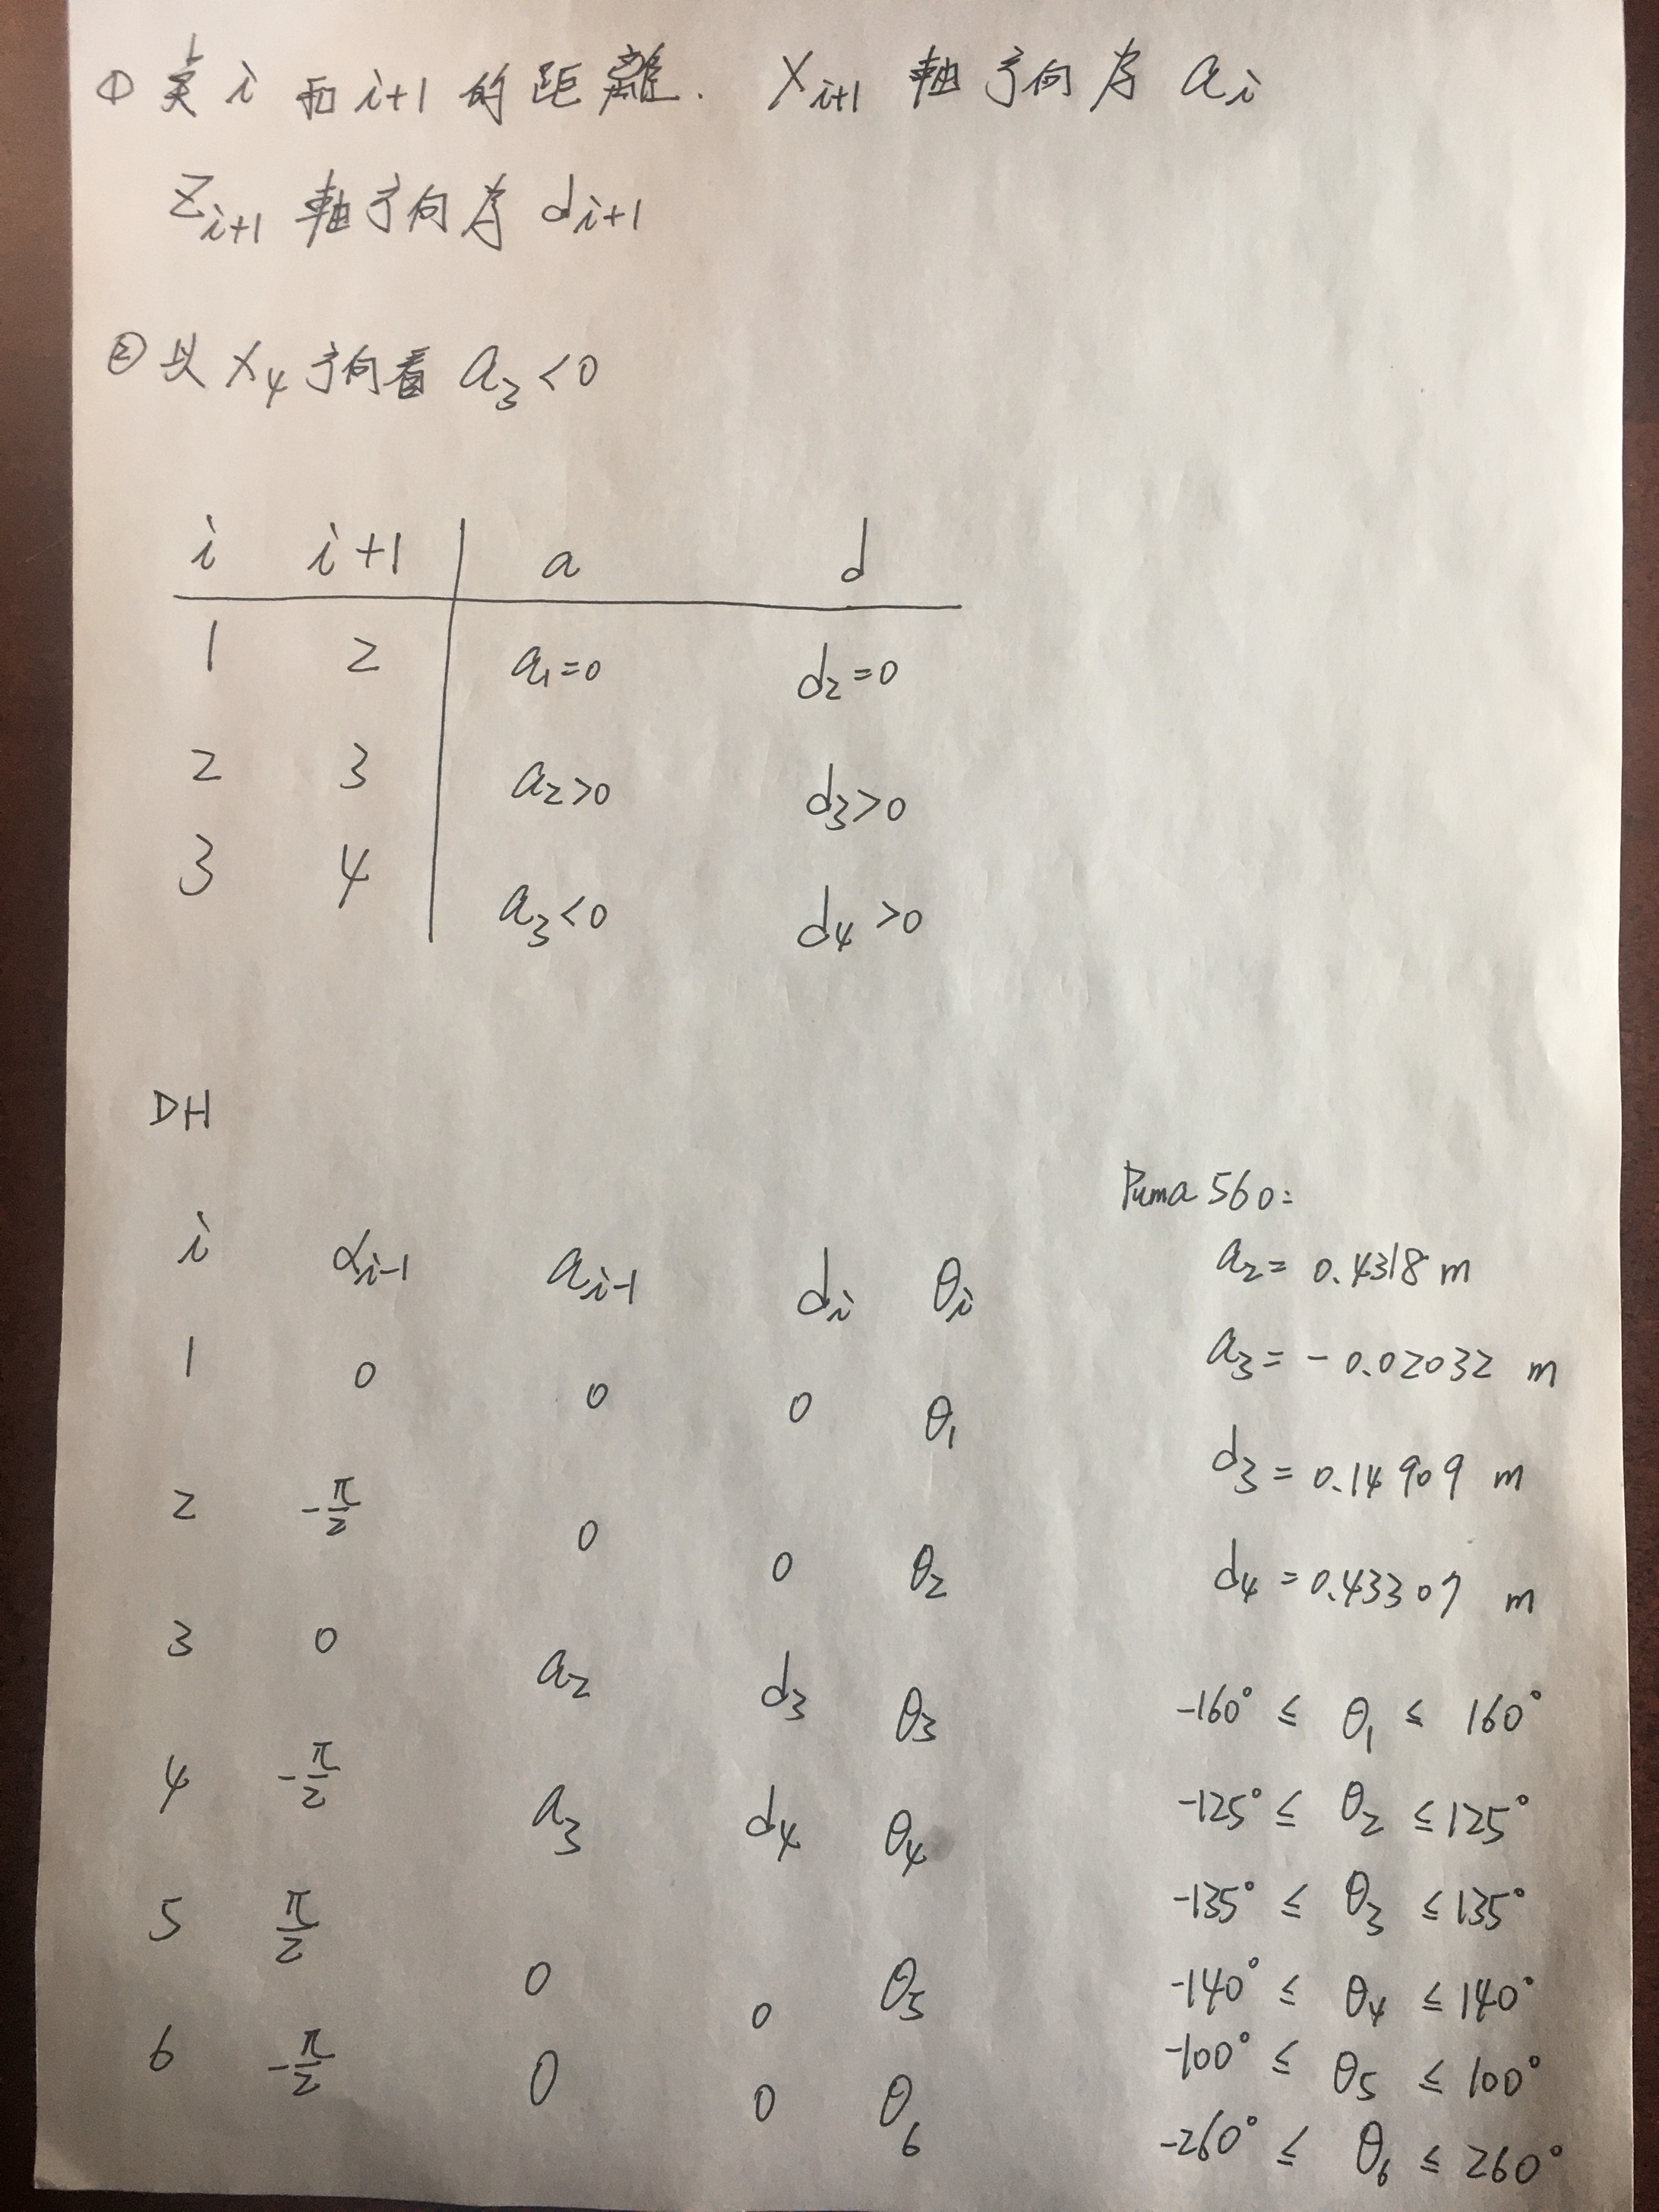 ① 點 i 和 i+1 的距離. X_{i+1} 軸方向為 a_i
Z_{i+1} 軸方向為 d_{i+1}
② 以 X_4 方向看 a_3<0
i i+1 a d
1 2 a_1=0 d_2=0
2 3 a_2>0 d_3>0
3 4 a_3<0 d_4>0
DH
i α_{i-1} a_{i-1} d_i θ_i
1 0 0 0 θ_1
2 -π/2 0 0 θ_2
3 0 a_2 d_3 θ_3
4 -π/2 a_3 d_4 θ_4
5 π/2 0 0 θ_5
6 -π/2 0 0 θ_6
Puma 560:
a_2= 0.4318 m
a_3= -0.02032 m
d_3= 0.14909 m
d_4=0.43307 m
-160° ≤ θ_1 ≤ 160°
-125° ≤ θ_2 ≤ 125°
-135° ≤ θ_3 ≤ 135°
-140° ≤ θ_4 ≤ 140°
-100° ≤ θ_5 ≤ 100°
-260° ≤ θ_6 ≤ 260°